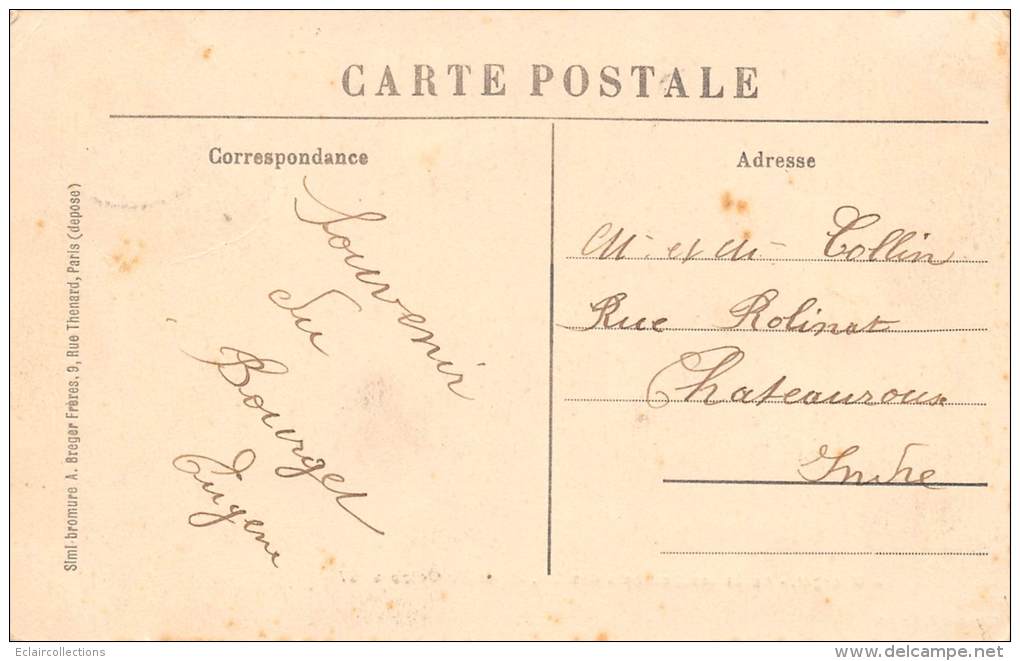 CARTE POSTALE
Correspondance
Adresse
Souvenir
Du
Bourget
Eugene
M. et M. Collin
Rue Rolinat
Chateauroux
Indre
Simi-bromure A. Breger Frères, 9, Rue Thenard, Paris (depose)
Eclaircollections
www.delcampe.net